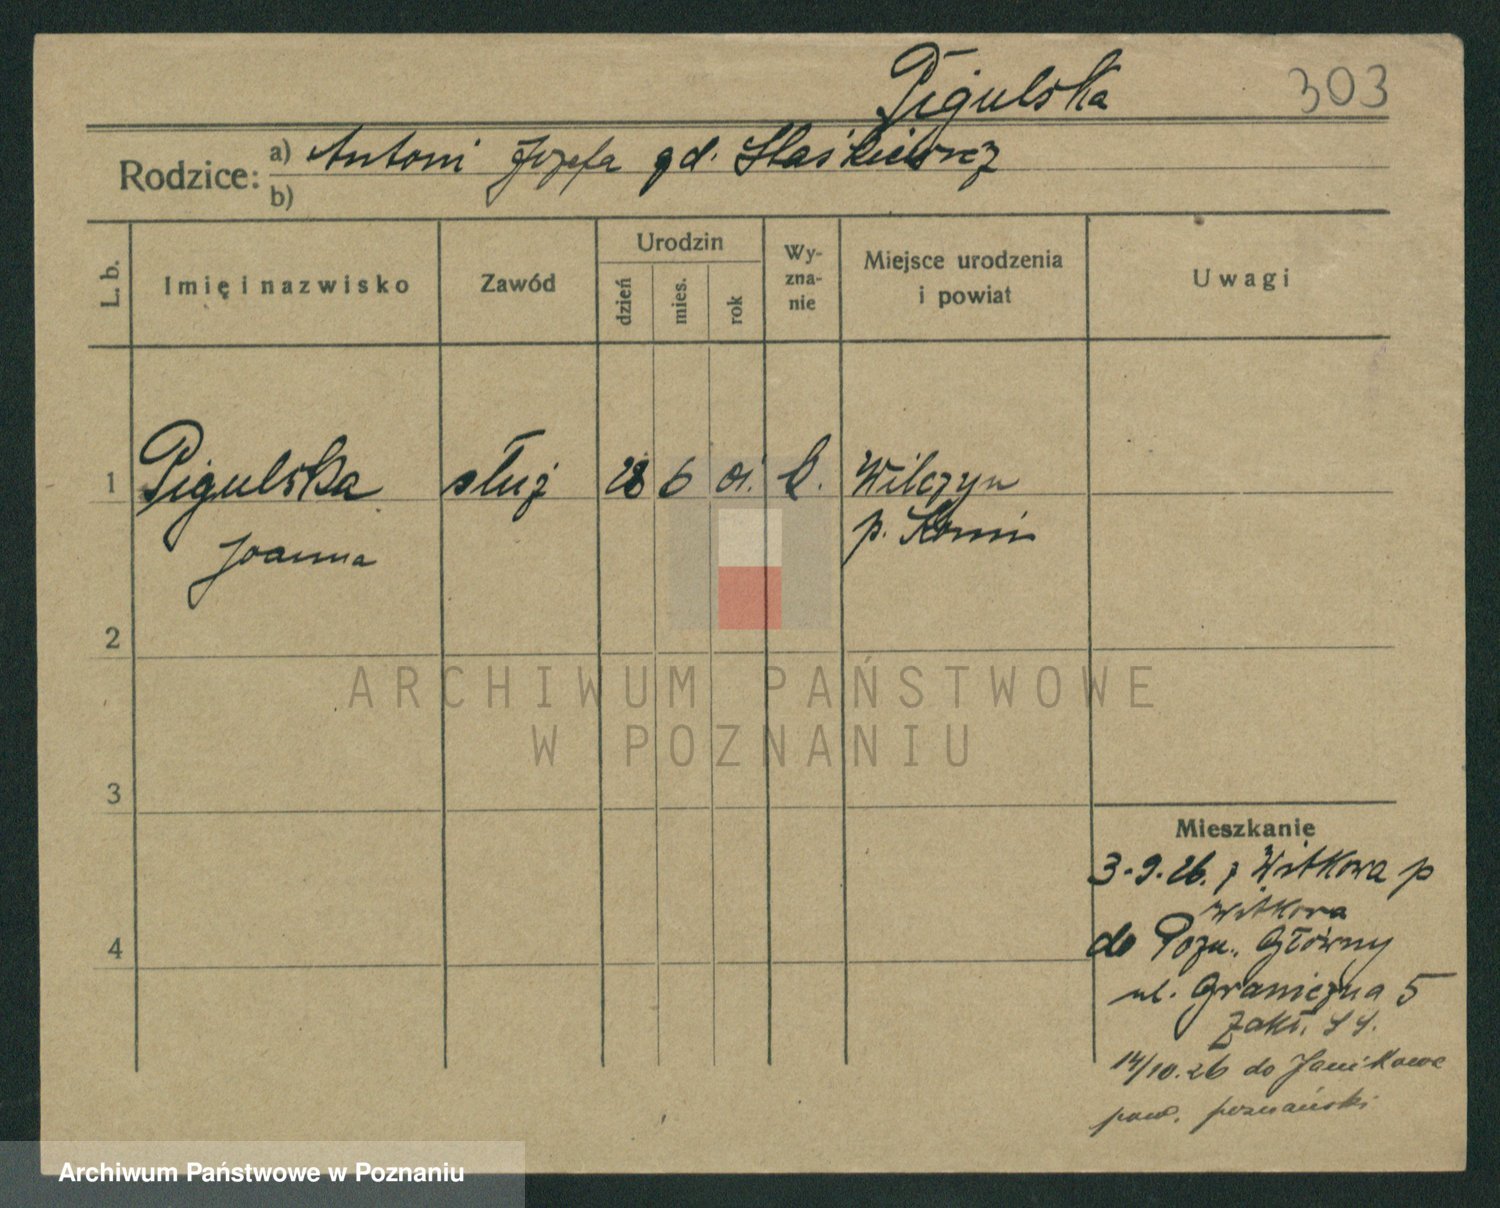 Pigulska 303
Rodzice: a) Antoni Józefa gd. Staśkiewicz
b)
L. b. Imię i nazwisko Zawód Urodzin dzień mies. rok Wyznanie Miejsce urodzenia i powiat Uwagi
1 Pigulska służ 28 6 01. k. Wilczyn
Joanna p. Konin
2
ARCHIWUM PAŃSTWOWE
W POZNANIU
3
Mieszkanie
3.9.26. z Witkowa p
Witkowa
4 do Pozn. Główny
ul. Graniczna 5
Zakł.
14/10.26 do Janikowa
pow. poznański
Archiwum Państwowe w Poznaniu